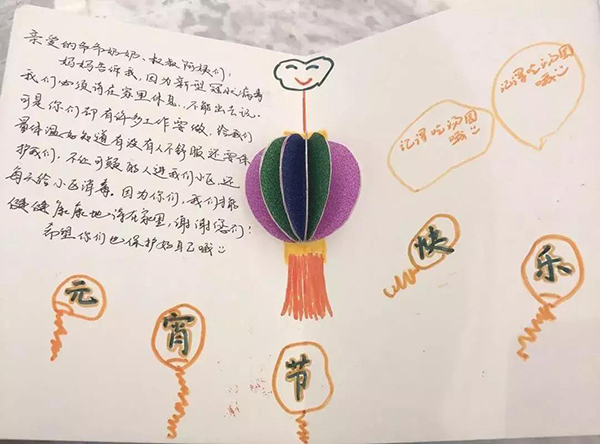 亲爱的爷爷奶奶、叔叔阿姨们，
妈妈告诉我，因为新型冠状病毒
我们必须待在家里休息，不能出去玩。
可是你们却有许多工作要做，给我们
量体温好知道有没有人不舒服还要保
护我们，不让可疑的人进我们小区，还
每天给小区消毒。因为你们，我们才能
健健康康地待在家里，谢谢您们！
希望你们也保护好自己哦
记得吃汤圆
哦
记得吃汤圆
哦
元
宵
节
快
乐